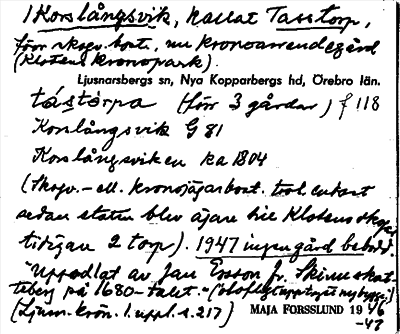 1 Korslångsvik, kallat Tasstorp,
förr skogv. bost., nu kronoarrendegård
(Klotens kronopark).
Ljusnarsbergs sn, Nya Kopparbergs hd, Örebro län.
tástòrpa (förr 3 gårdar) f 118
Korslångsvik G 81
Korslångsviken ka 1804
(Skogv.- ell. kronojägarbost. trol. enbart
sedan staten blev ägare hie Klotens skogar
tidigare 2 torp). 1947 ingen gård bebodd.
"Uppodlat av Jan Ersson fr. Skinnskat-
teberg på 1680-talet."
(Ljusn. krön. 1. uppl. s. 217) MAJA FORSSLUND 1946
-47